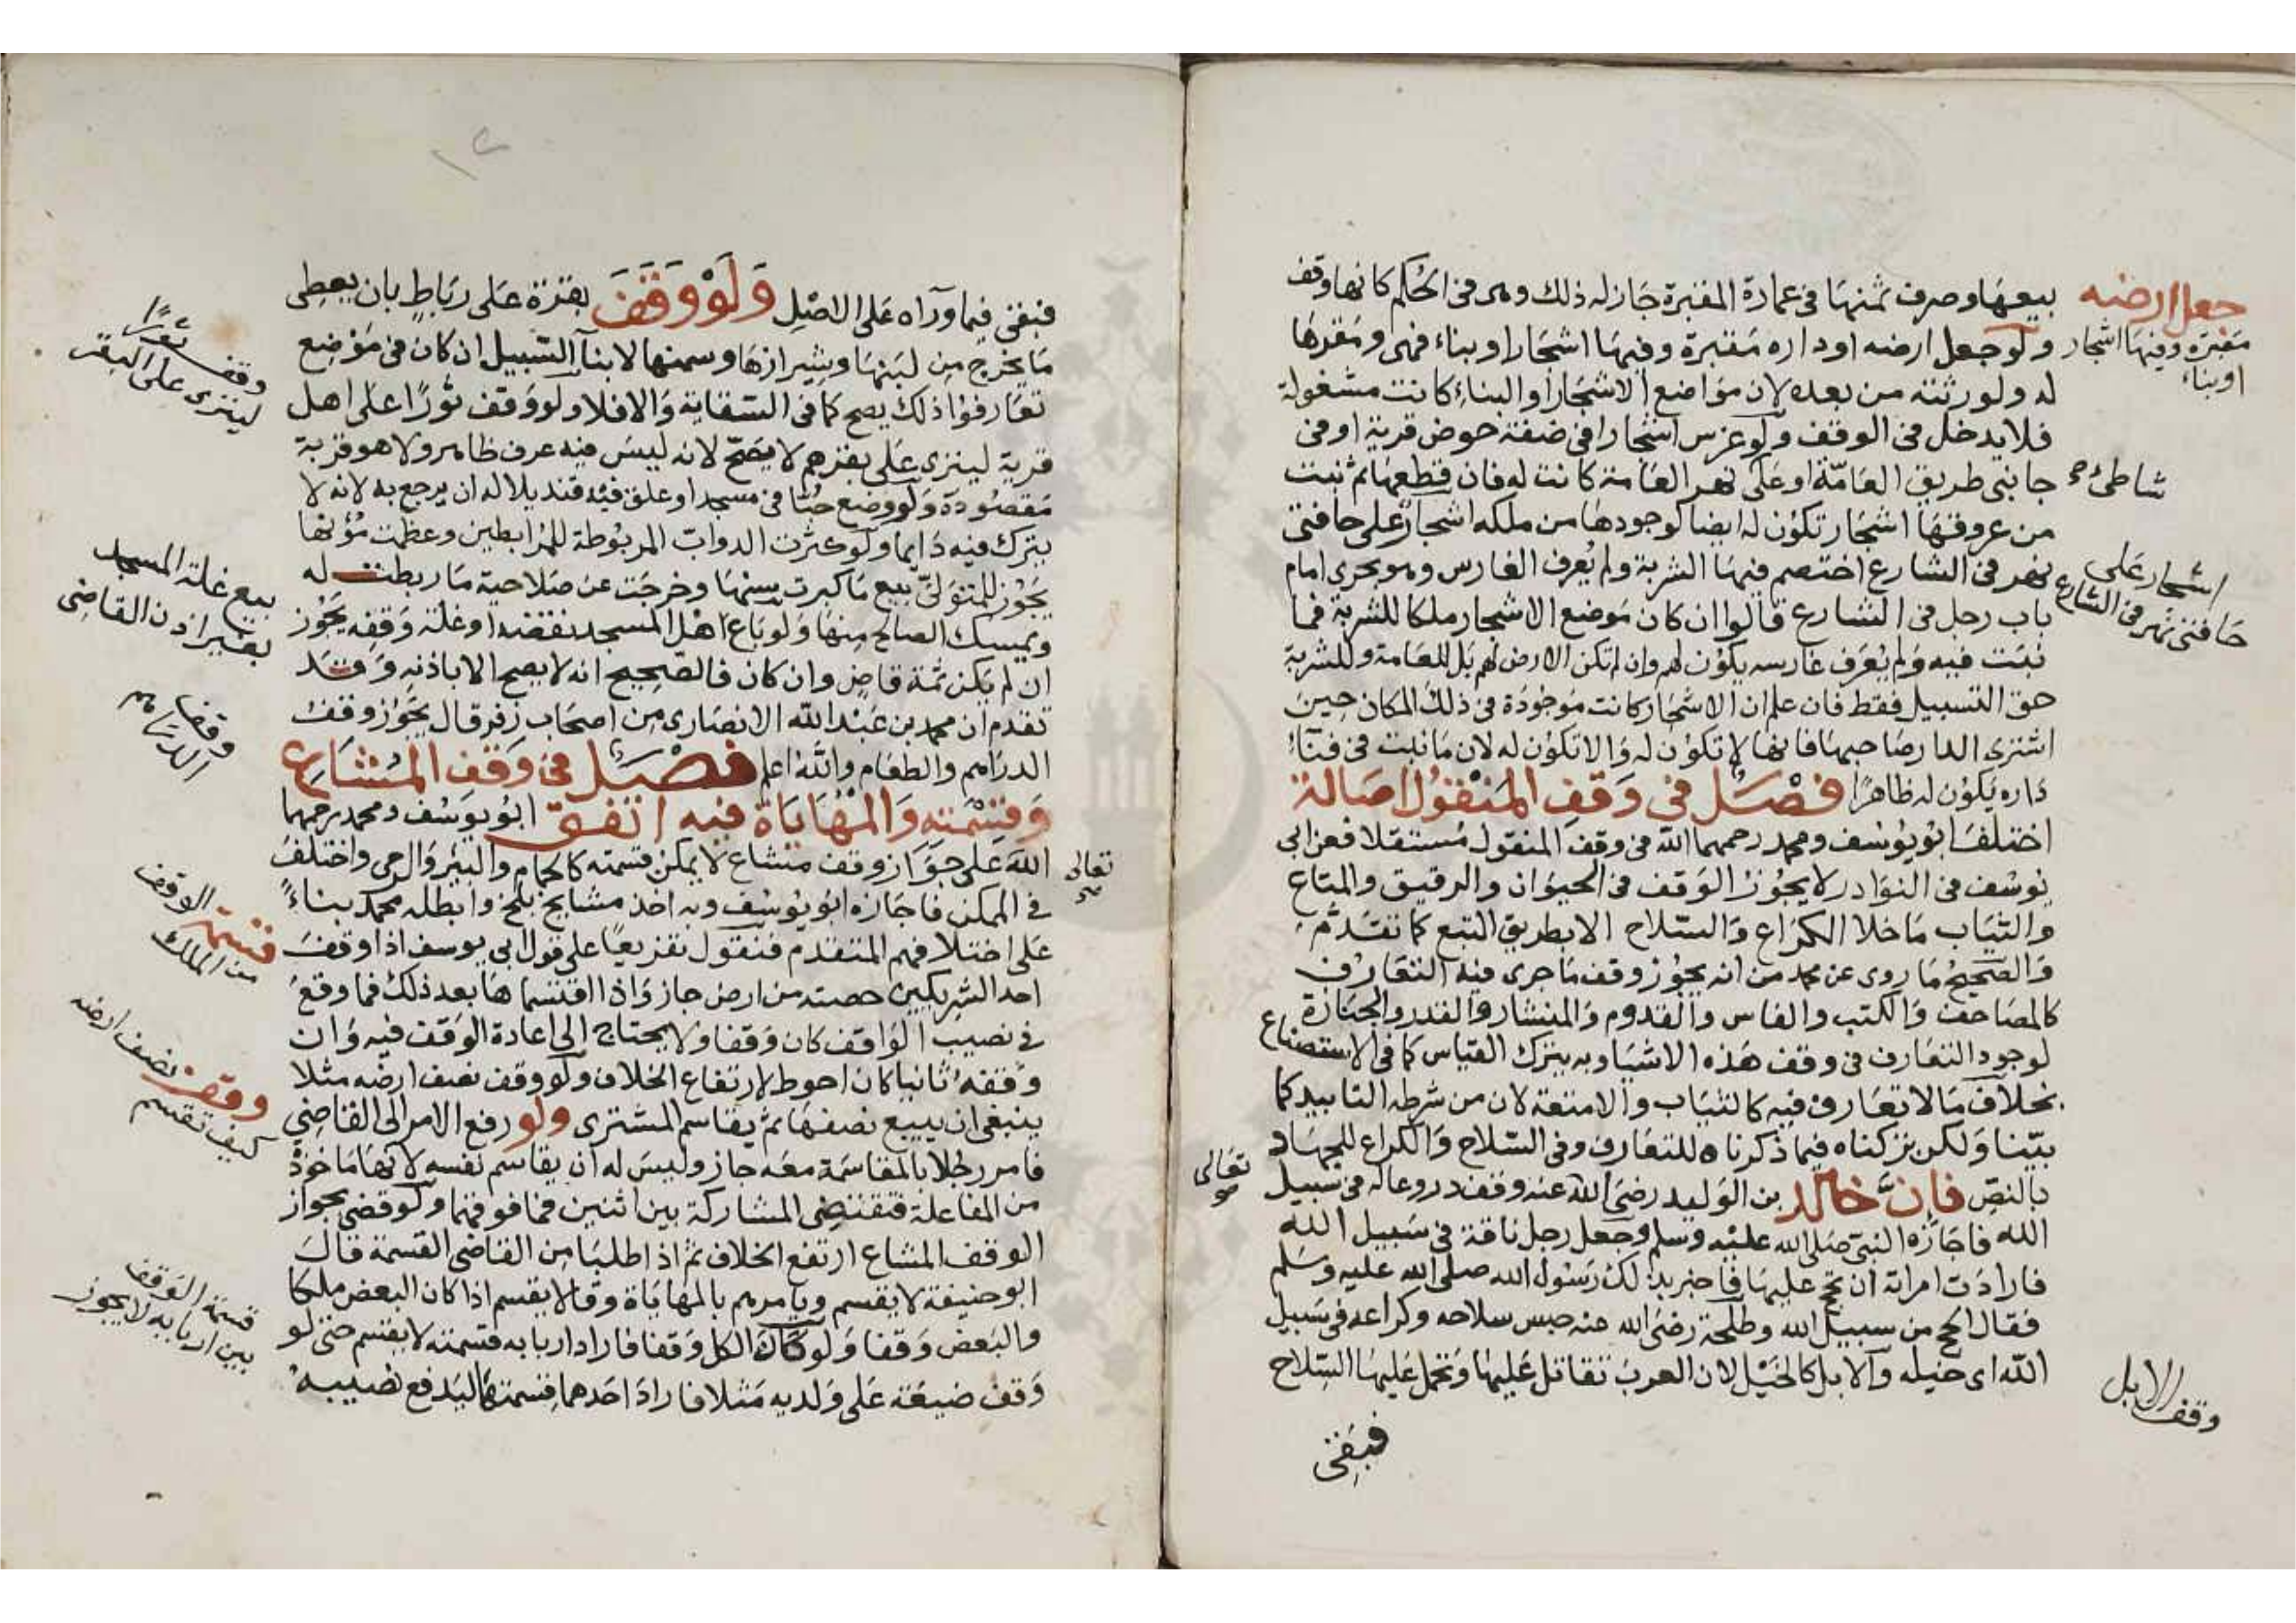 بيعها وصرف ثمنها في عمارة المقبرة جاز له ذلك وهي في الحكم كانها وقف
ولو جعل ارضه او داره مقبرة وفيها اشجار او بناء فهي ومقرها
له ولورثته من بعده لان مواضع الاشجار والبناء كانت مشغولة
فلا يدخل في الوقف ولو غرس اشجارا في ضفة حوض قرية او في
جانبي طريق العامة او على نهر العامة كانت له فان قطعها ثم نبت
من عروقها اشجار تكون له ايضا لوجودها من ملكه اشجار على حافتي
نهر في الشارع اختصم فيها الشربة ولم يعرف الغارس وهو يجري امام
باب رجل في الشارع قالوا ان كان موضع الاشجار ملكا للشربة فما
نبت فيه ولم يعرف غارسه يكون لهم وان لم تكن الارض لهم بل للعامة وللشربة
حق التسبيل فقط فان علم ان الاشجار كانت موجودة في ذلك المكان حين
اشترى الدار صاحبها فانها لا تكون له والا تكون له لان ما نبت في فناء
داره يكون له ظاهرا فصل في وقف المنقول اصالة
اختلف ابو يوسف ومحمد رحمهما الله في وقف المنقول مستقلا فعن ابي
يوسف في النوادر لا يجوز الوقف في الحيوان والرقيق والمتاع
والثياب ما خلا الكراع والسلاح الا بطريق التبع كما تقدم
والصحيح ما روي عن محمد من انه يجوز وقف ما جرى فيه التعارف
كالمصاحف والكتب والفاس والقدوم والمنشار والقدر والجنازة
لوجود التعارف في وقف هذه الاشيا وبه يترك القياس كما في الاستصناع
بخلاف ما لا تعارف فيه كالثياب والامتعة لان من شرطه التابيد كما
بيّنا ولكن تركناه فيما ذكرناه للتعارف وفي السلاح والكراع للجهاد
بالنص فان خالد بن الوليد رضي الله عنه وقف دروعا له في سبيل
الله فاجازه النبي صلى الله عليه وسلم وجعل رجل ناقة في سبيل الله
فارادت امراته ان تحج عليها فاخبر بذلك رسول الله صلى الله عليه وسلم
فقال الحج من سبيل الله وطلحة رضي الله عنه حبس سلاحه وكراعه في سبيل
الله اي خيله والابل كالخيل لان العرب تقاتل عليها وتحمل عليها السلاح
فبقي
جعل ارضه
مقبرة وفيها اشجار
او بناء
شاطئ
اشجار على
حافتي نهر في الشارع
تعالى
وقف الابل
فبقي فيما وراه على الاصل ولو وقف بقرة على رباط بان يعطى
ما يخرج من لبنها وشيرازها وسمنها لابنا السبيل ان كان في موضع
تعارفوا ذلك يصح كما في السقاية والا فلا ولو وقف ثورا على اهل
قرية لينزى على بقرهم لا يصح لانه ليس فيه عرف ظاهر ولا هو قربة
مقصودة ولو وضع حبا في مسجد او علق فيه قنديلا له ان يرجع به لانه لا
يترك فيه دايما ولو كثرت الدواب المربوطة للمرابطين وعظمت مؤنها
يجوز للمتولي بيع ما كبرت سنها وخرجت عن صلاحية ما ربطت له
ويمسك الصالح منها ولو باع اهل المسجد نقضه او غلة وقفه يجوز
ان لم يكن ثمة قاض وان كان فالصحيح انه لا يصح الا باذنه وقد
تقدم ان محمد بن عبد الله الانصاري من اصحاب زفر قال يجوز وقف
الدراهم والطعام والله اعلم فصل في وقف المشاع
وقسمته والمهاياة فيه اتفق ابو يوسف ومحمد رحمهما
الله على جواز وقف مشاع لا يمكن قسمته كالحمام والبئر والرحى واختلف
في الممكن فاجازه ابو يوسف وبه اخذ مشايخ بلخ وابطله محمد بناء
على اختلافهم المتقدم فنقول تفريعا على قول ابي يوسف اذا وقف
احد الشريكين حصته من ارض جاز واذا اقتسماها بعد ذلك فما وقع
في نصيب الواقف كان وقفا ولا يحتاج الى اعادة الوقف فيه وان
وقفه ثانيا كان احوط لارتفاع الخلاف ولو وقف نصف ارضه مثلا
ينبغي ان يبيع نصفها ثم يقاسم المشتري ولو رفع الامر الى القاضي
فامر رجلا بالمقاسمة معه جاز وليس له ان يقاسم نفسه لانها ماخوذ
من المفاعلة فتقتضي المشاركة بين اثنين فما فوقهما ولو قضى بجواز
الوقف المشاع ارتفع الخلاف ثم اذا طلبا من القاضي القسمة قال
ابو حنيفة لا يقسم ويامرهم بالمهاياة وقالا يقسم اذا كان البعض ملكا
والبعض وقفا ولو كان الكل وقفا فاراد اربابه قسمته لا يقسم حتى لو
وقف ضيعة على ولديه مثلا فاراد احدهما قسمتها ليدفع نصيبه
وقف ثورا
لينزى على البقر
بيع غلة المسجد
بغير اذن القاضي
وقف
الدراهم
تعالى
قسمة الوقف
من الملك
وقف نصف ارضه
كيف تقسم
قسمة الوقف
بين اربابه لا يجوز